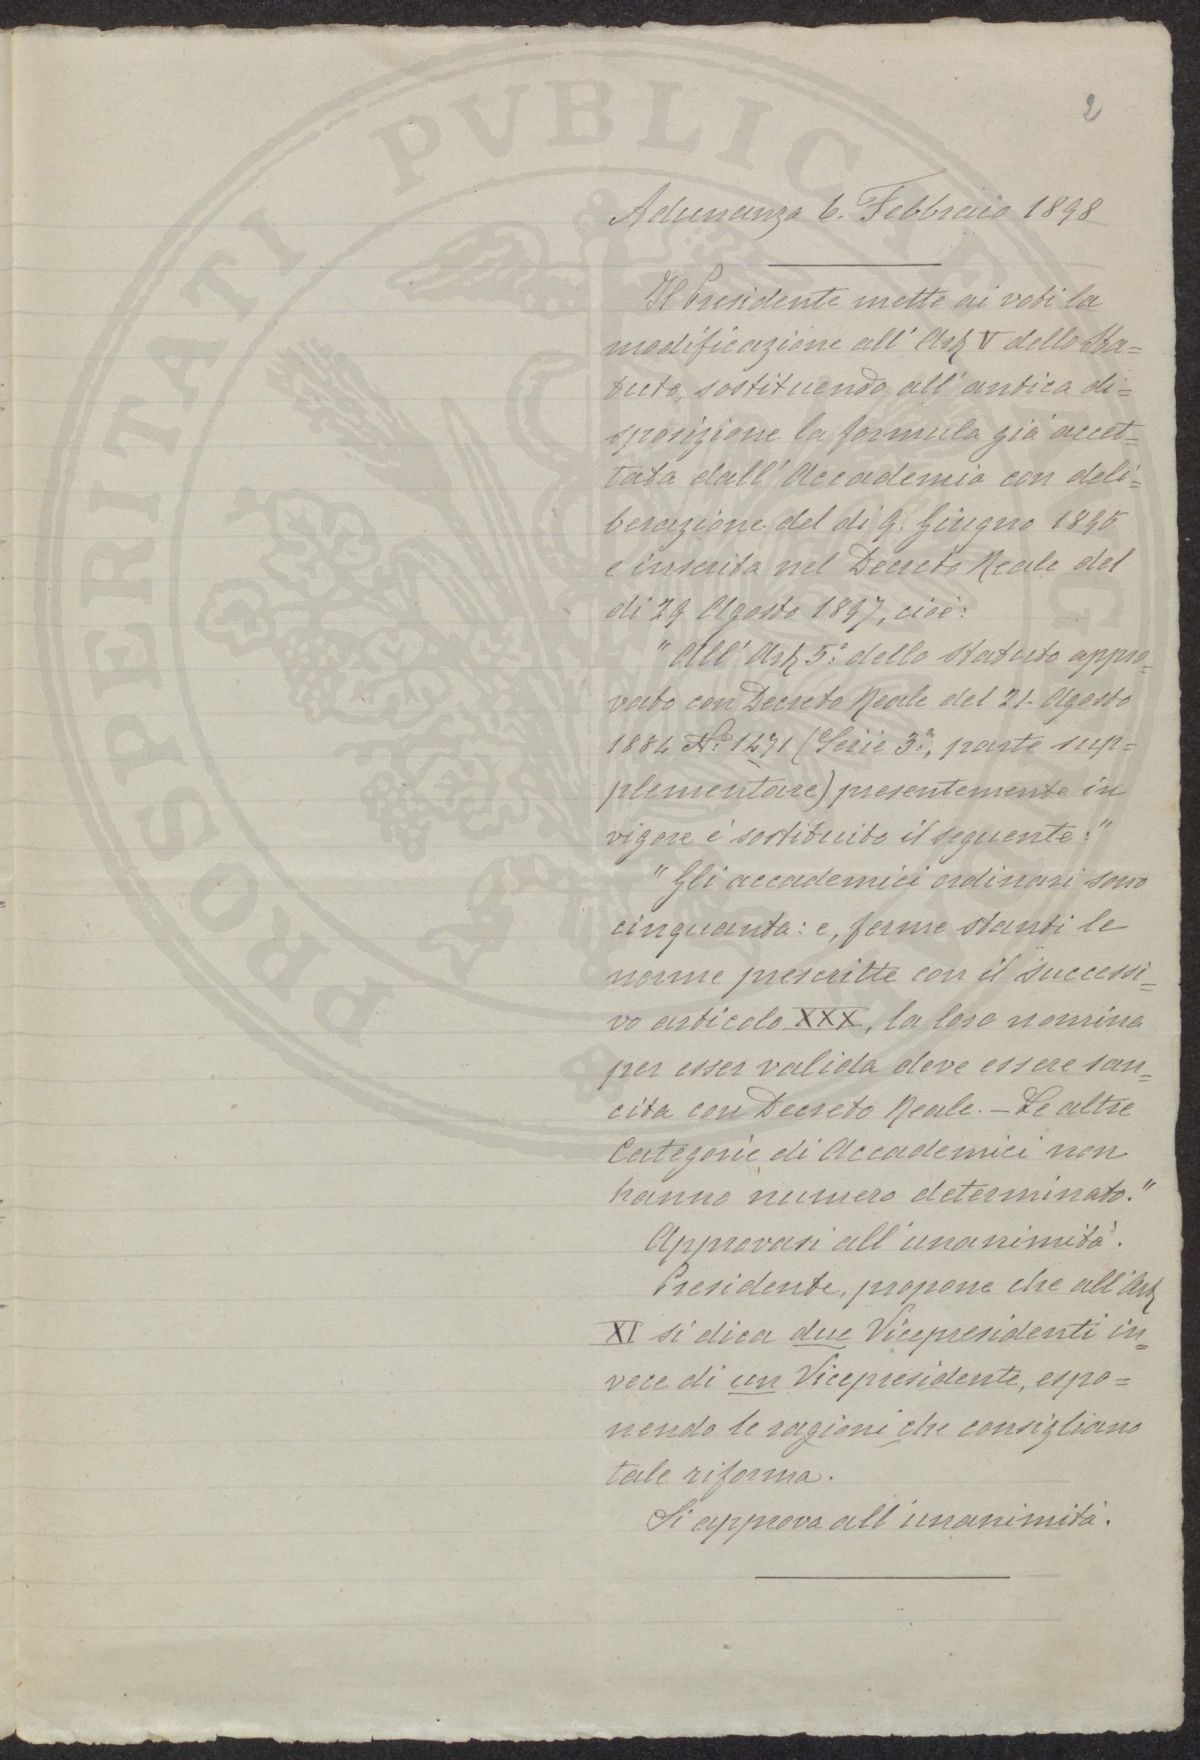 2
PROSPERITATI PVBLICAE AVGENDAE
Adunanza 6. Febbraio 1898
Il Presidente mette ai voti la
modificazione all' Art V dello Sta=
tuto, sostituendo all' antica di=
sposizione la formula già accet=
tata dall' Accademia con deli=
berazione del di 9. Giugno 1895
e inserita nel Decreto Reale del
di 29 Agosto 1897, cioè:
" All' Art 5.° dello Statuto appro=
vato con Decreto Reale del 21. Agosto
1884 N.° 1471 (Serie 3.ª, parte sup=
plementare) presentemente in
vigore è sostituito il seguente:"
" Gli accademici ordinari sono
cinquanta: e, ferme stanti le
norme prescritte con il successi=
vo articolo XXX, la loro nomina
per esser valida deve essere san=
cita con Decreto Reale. – Le altre
Categorie di Accademici non
hanno numero determinato."
Approvasi all' unanimità.
Presidente, propone che all' Art
XI si dica due Vicepresidenti in=
vece di un Vicepresidente, espo=
nendo le ragioni che consigliano
tale riforma.
Si approva all' unanimità.